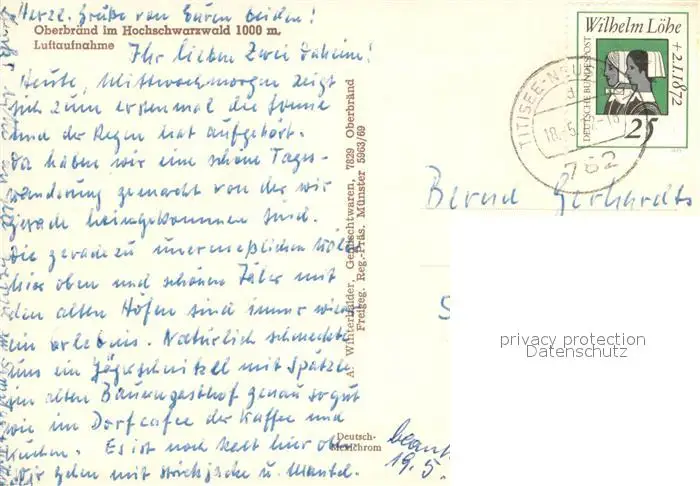 Herzl. Grüße von Euren beiden!
Oberbränd im Hochschwarzwald 1000 m,
Luftaufnahme
Ihr lieben Zwei daheim!
Heute, Mittwochmorgen zeigt
sich zum erstenmal die Sonne
und der Regen hat aufgehört.
Da haben wir eine schöne Tages-
wanderung gemacht von der wir
gerade heimgekommen sind.
Die geradezu unermeßlichen
hier oben und schönen Täler mit
den alten Höfen sind immer wieder
ein Erlebnis. Natürlich schmeckte
uns ein Jägerschnitzel mit Spätzle
im alten Bauerngasthof genau so gut
wie im Dorfcafee der Kaffee und
Kuchen. Es ist noch kalt hier oben
Wir gehen mit Strickjacke u. Mantel.
A. Winterhalder, Gemischtwaren, 7829 Oberbränd
Freigeg. Reg.-Präs. Münster 5963/69
Deutsch-
Mexichrom
beant
19.5.
Wilhelm Löhe
+2.1.1872
DEUTSCHE BUNDESPOST
25
TITISEE-NEU
18.-5.
782
Bernd Gerhardts
privacy protection
Datenschutz